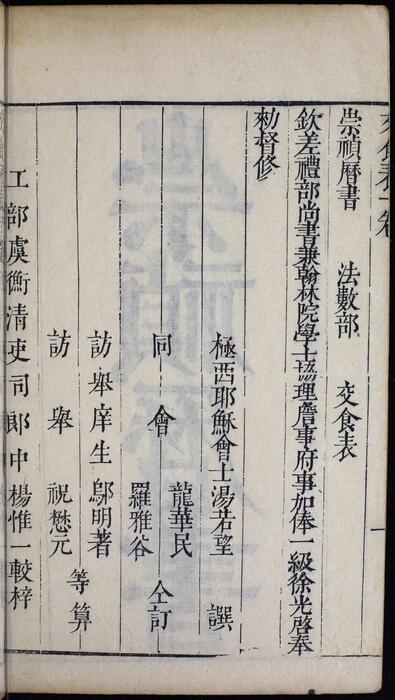 交食表一卷
崇禎曆書 法數部 交食表 一
欽差禮部尚書兼翰林院學士協理詹事府事加俸一級徐光啓奉
勑督修
極西耶穌會士湯若望 譔
龍華民
同會 仝訂
羅雅谷
訪舉庠生鄔明著
等算
訪舉 祝懋元
工部虞衡清吏司郎中楊惟一較梓